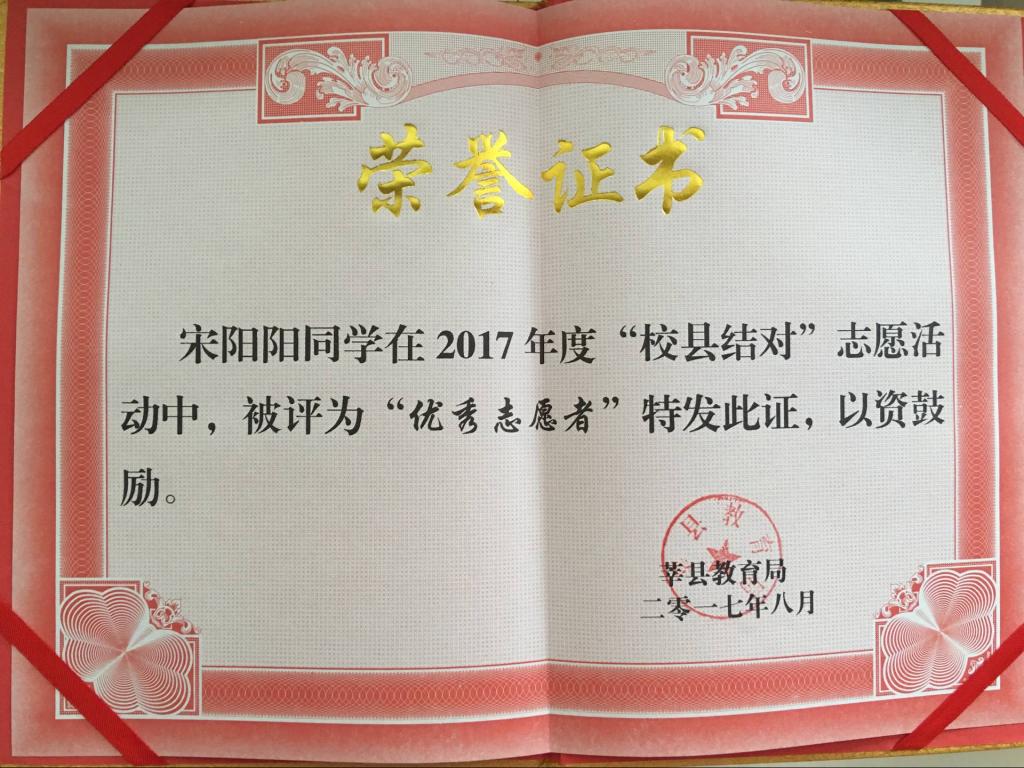 荣誉证书
宋阳阳同学在2017年度“校县结对”志愿活
动中，被评为“优秀志愿者”特发此证，以资鼓
励。
县教育
莘县教育局
二零一七年八月